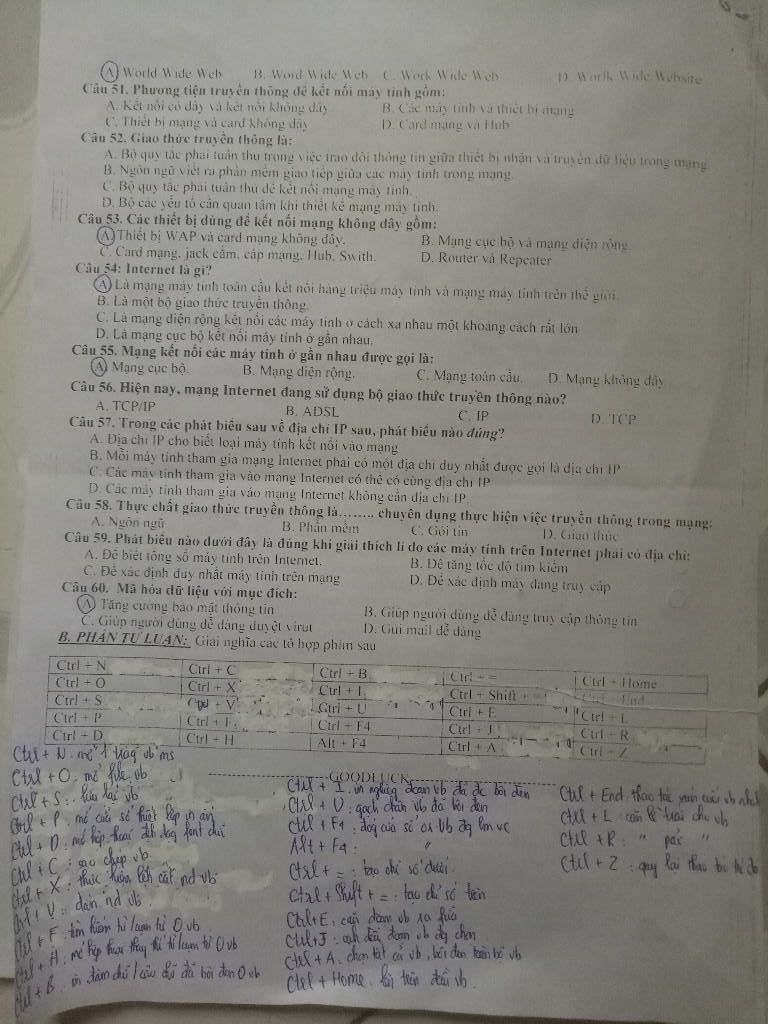 A. World Wide Web B. Word Wide Web C. Work Wide Web D. Worlk Wide Website
Câu 51. Phương tiện truyền thông để kết nối máy tính gồm:
A. Kết nối có dây và kết nối không dây B. Các máy tính và thiết bị mạng
C. Thiết bị mạng và card không dây D. Card mạng và Hub
Câu 52. Giao thức truyền thông là:
A. Bộ quy tắc phải tuân thủ trong việc trao đổi thông tin giữa thiết bị nhận và truyền dữ liệu trong mạng.
B. Ngôn ngữ viết ra phần mềm giao tiếp giữa các máy tính trong mạng.
C. Bộ quy tắc phải tuân thủ để kết nối mạng máy tính.
D. Bộ các yếu tố cần quan tâm khi thiết kế mạng máy tính.
Câu 53. Các thiết bị dùng để kết nối mạng không dây gồm:
A. Thiết bị WAP và card mạng không dây. B. Mạng cục bộ và mạng diện rộng.
C. Card mạng, jack cắm, cáp mạng, Hub, Swith. D. Router và Repeater
Câu 54: Internet là gì?
A. Là mạng máy tính toàn cầu kết nối hàng triệu máy tính và mạng máy tính trên thế giới.
B. Là một bộ giao thức truyền thông.
C. Là mạng diện rộng kết nối các máy tính ở cách xa nhau một khoảng cách rất lớn
D. Là mạng cục bộ kết nối máy tính ở gần nhau.
Câu 55. Mạng kết nối các máy tính ở gần nhau được gọi là:
A. Mạng cục bộ. B. Mạng diện rộng. C. Mạng toàn cầu. D. Mạng không dây
Câu 56. Hiện nay, mạng Internet đang sử dụng bộ giao thức truyền thông nào?
A. TCP/IP B. ADSL C. IP D. TCP
Câu 57. Trong các phát biểu sau về địa chỉ IP sau, phát biểu nào đúng?
A. Địa chỉ IP cho biết loại máy tính kết nối vào mạng
B. Mỗi máy tính tham gia mạng Internet phải có một địa chỉ duy nhất được gọi là địa chỉ IP
C. Các máy tính tham gia vào mạng Internet có thể có cùng địa chỉ IP
D. Các máy tính tham gia vào mạng Internet không cần địa chỉ IP.
Câu 58. Thực chất giao thức truyền thông là…….. chuyên dụng thực hiện việc truyền thông trong mạng:
A. Ngôn ngữ B. Phần mềm C. Gói tin D. Giao thức
Câu 59. Phát biểu nào dưới đây là đúng khi giải thích lí do các máy tính trên Internet phải có địa chỉ:
A. Để biết tổng số máy tính trên Internet. B. Để tăng tốc độ tìm kiếm
C. Để xác định duy nhất máy tính trên mạng D. Để xác định máy đang truy cập
Câu 60. Mã hóa dữ liệu với mục đích:
A. Tăng cường bảo mật thông tin B. Giúp người dùng dễ dàng truy cập thông tin
C. Giúp người dùng dễ dàng duyệt virut D. Gửi mail dễ dàng
B. PHẦN TỰ LUẬN: Giải nghĩa các tổ hợp phím sau
Ctrl + N Ctrl + C Ctrl + B Ctrl + = Ctrl + Home
Ctrl + O Ctrl + X Ctrl + I Ctrl + Shift + = Ctrl + End
Ctrl + S Ctrl + V Ctrl + U Ctrl + E Ctrl + L
Ctrl + P Ctrl + F Ctrl + F4 Ctrl + J Ctrl + R
Ctrl + D Ctrl + H Alt + F4 Ctrl + A Ctrl + Z
GOODLUCK
Ctrl + N: mở 1 trang vb ms
Ctrl + O: mở file vb
Ctrl + S: lưu lại vb
Ctrl + P: mở cửa sổ thiết lập in ấn
Ctrl + D: mở hộp thoại đh dạng font chữ
Ctrl + C: sao chép vb
Ctrl + X: thực hiện lệnh cắt nd vb
Ctrl + V: dán nd vb
Ctrl + F: tìm kiếm từ/cụm từ
Ctrl + H: mở hộp thoại thay thế từ/cụm từ
Ctrl + B: in đậm chữ/câu chữ đã bôi đen
Ctrl + I: in nghiêng đoạn vb đã đc bôi đen
Ctrl + U: gạch chân vb đã bôi đen
Ctrl + F4: đóng cửa sổ
Alt + F4: "
Ctrl + =: tạo chỉ số dưới
Ctrl + Shift + =: tạo chỉ số trên
Ctrl + E: căn đoạn vb ra giữa
Ctrl + J: đoạn vb chọn
Ctrl + A: chọn tất cả vb, bôi đen toàn bộ vb
Ctrl + Home: trên đầu vb
Ctrl + End: thao tác xuống cuối vb
Ctrl + L: căn lề trái cho vb
Ctrl + R: " phải "
Ctrl + Z: quay lại thao tác